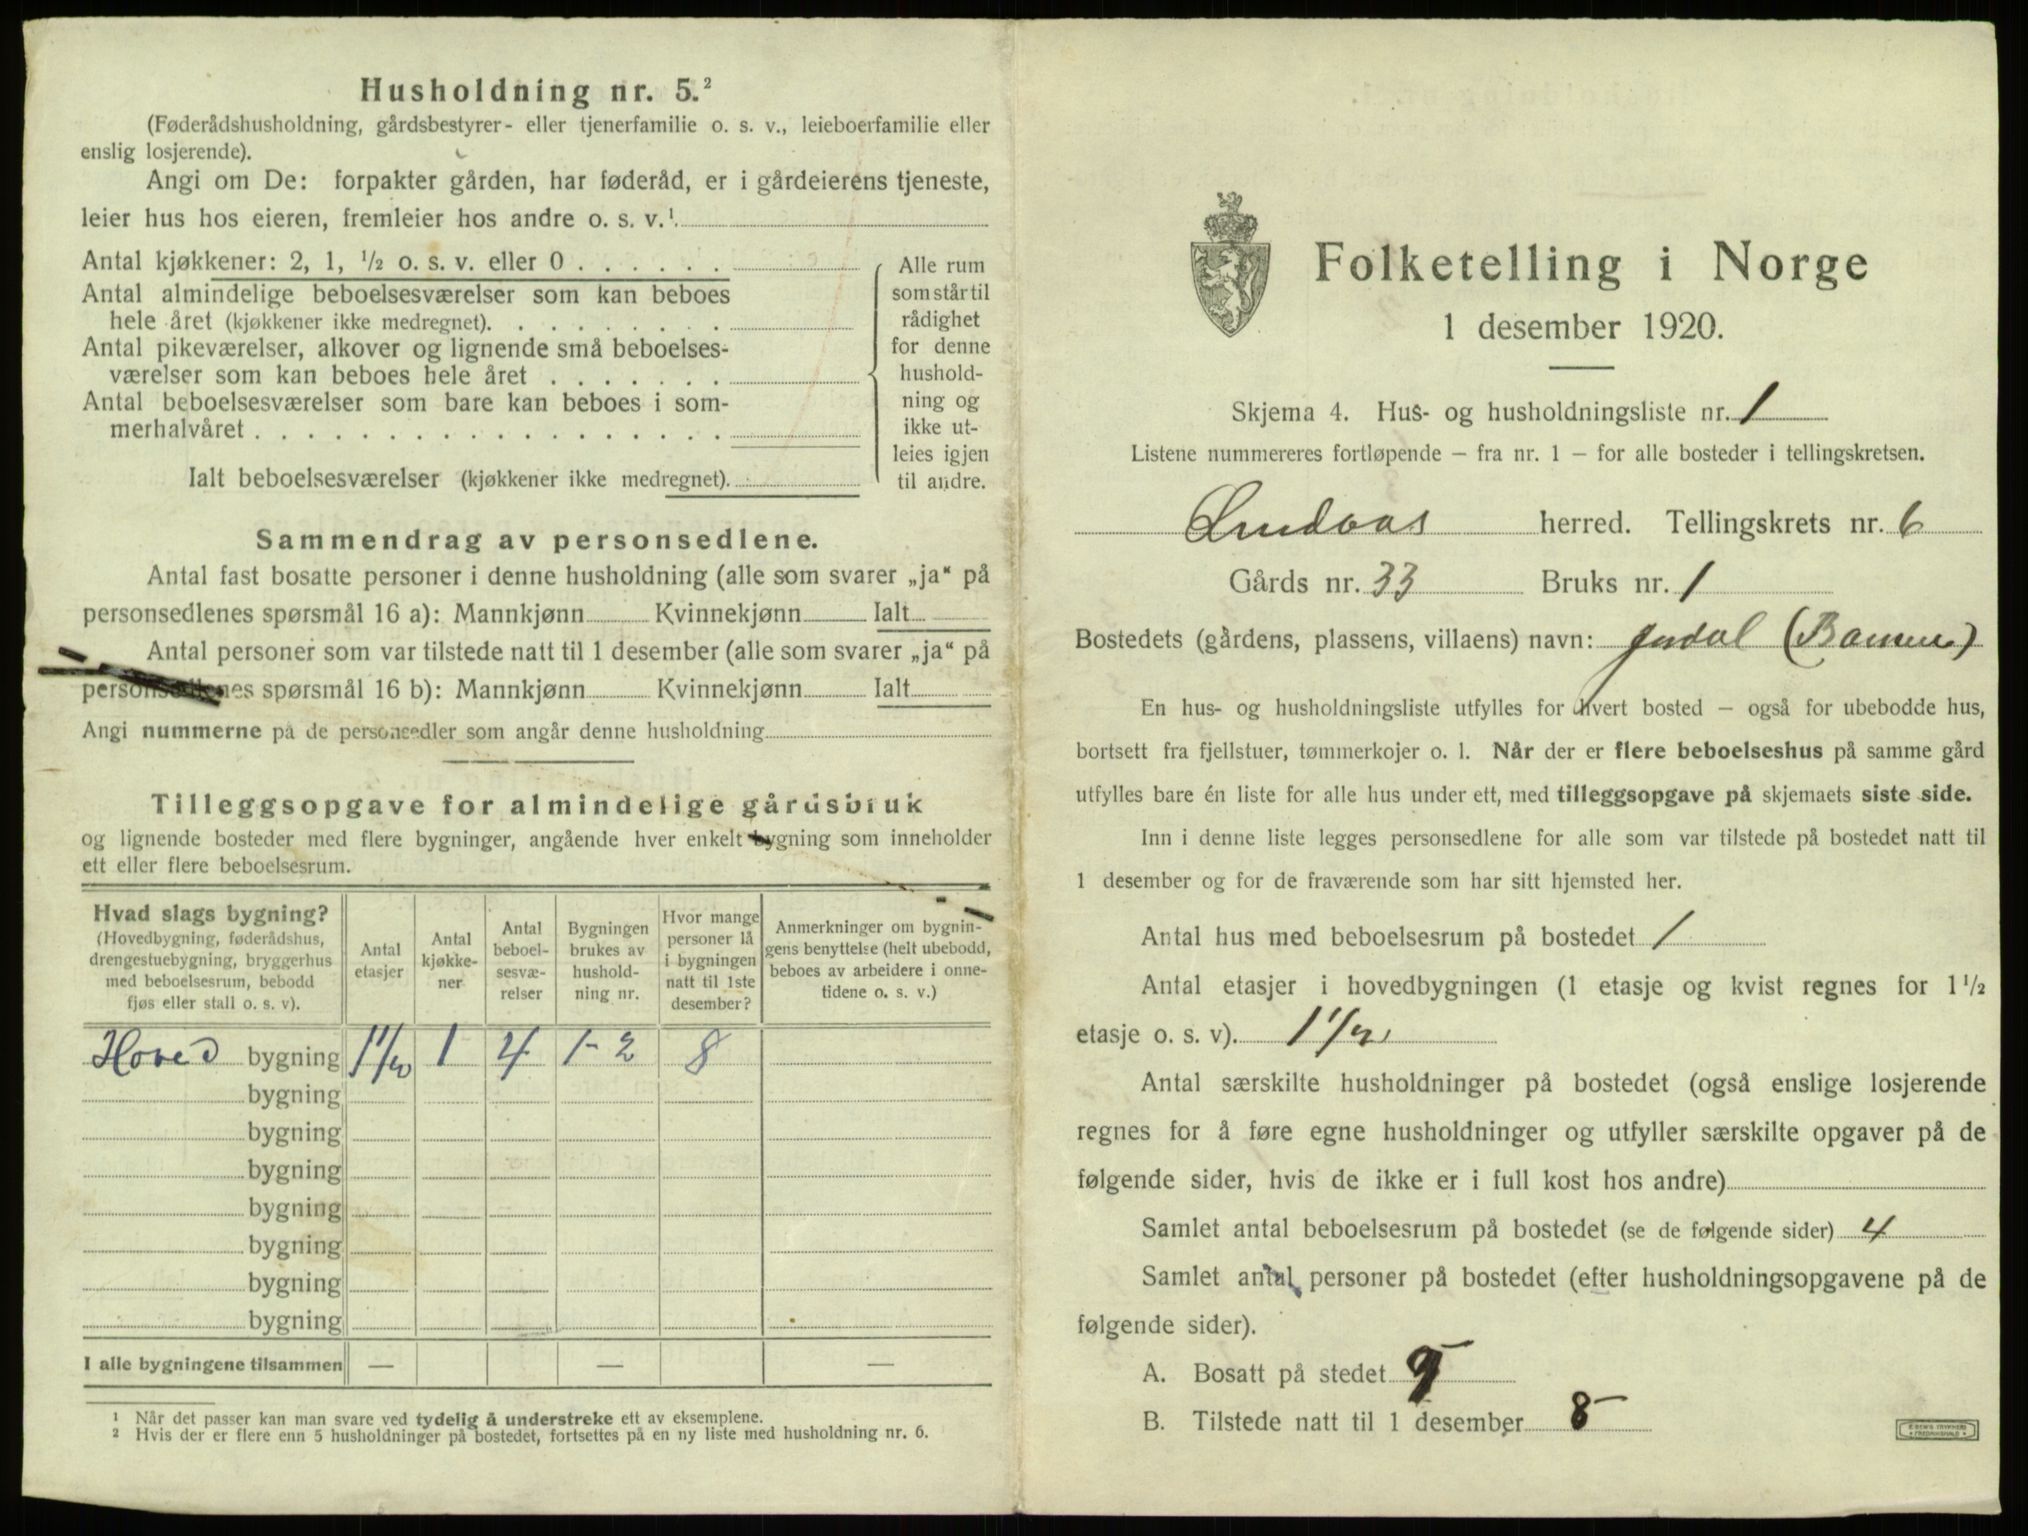 Husholdning nr. 5.²
(Føderådshusholdning, gårdsbestyrer- eller tjenerfamilie o. s. v., leieboerfamilie eller
enslig losjerende).
Angi om De: forpakter gården, har føderåd, er i gårdeierens tjeneste,
leier hus hos eieren, fremleier hos andre o. s. v.¹
Antal kjøkkener: 2, 1, ½ o. s. v. eller 0
Antal almindelige beboelsesværelser som kan beboes
hele året (kjøkkener ikke medregnet).
Antal pikeværelser, alkover og lignende små beboelses-
værelser som kan beboes hele året
Antal beboelsesværelser som bare kan beboes i som-
merhalvåret
Ialt beboelsesværelser (kjøkkener ikke medregnet).
Alle rum
som står til
rådighet
for denne
hushold-
ning og
ikke ut-
leies igjen
til andre.
Sammendrag av personsedlene.
Antal fast bosatte personer i denne husholdning (alle som svarer „ja“ på
personsedlenes spørsmål 16 a): Mannkjønn Kvinnekjønn Ialt
Antal personer som var tilstede natt til 1 desember (alle som svarer „ja“ på
personsedlenes spørsmål 16 b): Mannkjønn Kvinnekjønn Ialt
Angi nummerne på de personsedler som angår denne husholdning
Tilleggsopgave for almindelige gårdsbruk
og lignende bosteder med flere bygninger, angående hver enkelt bygning som inneholder
ett eller flere beboelsesrum.
Hvad slags bygning?
(Hovedbygning, føderådshus,
drengestuebygning, bryggerhus
med beboelsesrum, bebodd
fjøs eller stall o. s. v).
Antal
etasjer
Antal
kjøkke-
ner
Antal
beboel-
sesvæ-
relser
Bygningen
brukes av
hushold-
ning nr.
Hvor mange
personer lå
i bygningen
natt til 1ste
desember?
Anmerkninger om bygnin-
gens benyttelse (helt ubebodd,
beboes av arbeidere i onne-
tidene o. s. v.)
Hoved bygning 1 1/2 1 4 1-2 8
bygning
bygning
bygning
bygning
bygning
bygning
bygning
I alle bygningene tilsammen — — —
¹ Når det passer kan man svare ved tydelig å understreke ett av eksemplene.
² Hvis der er flere enn 5 husholdninger på bostedet, fortsettes på en ny liste med husholdning nr. 6.
Folketelling i Norge
1 desember 1920.
Skjema 4. Hus- og husholdningsliste nr. 1
Listene nummereres fortløpende – fra nr. 1 – for alle bosteder i tellingskretsen.
Lindaas herred. Tellingskrets nr. 6
Gårds nr. 33 Bruks nr. 1
Bostedets (gårdens, plassens, villaens) navn:
En hus- og husholdningsliste utfylles for hvert bosted – også for ubebodde hus,
bortsett fra fjellstuer, tømmerkojer o. l. Når der er flere beboelseshus på samme gård
utfylles bare én liste for alle hus under ett, med tilleggsopgave på skjemaets siste side.
Inn i denne liste legges personsedlene for alle som var tilstede på bostedet natt til
1 desember og for de fraværende som har sitt hjemsted her.
Antal hus med beboelsesrum på bostedet 1
Antal etasjer i hovedbygningen (1 etasje og kvist regnes for 1½
etasje o. s. v). 1 1/2
Antal særskilte husholdninger på bostedet (også enslige losjerende
regnes for å føre egne husholdninger og utfyller særskilte opgaver på de
følgende sider, hvis de ikke er i full kost hos andre)
Samlet antal beboelsesrum på bostedet (se de følgende sider) 4
Samlet antal personer på bostedet (efter husholdningsopgavene på de
følgende sider).
A. Bosatt på stedet 9
B. Tilstede natt til 1 desember 8